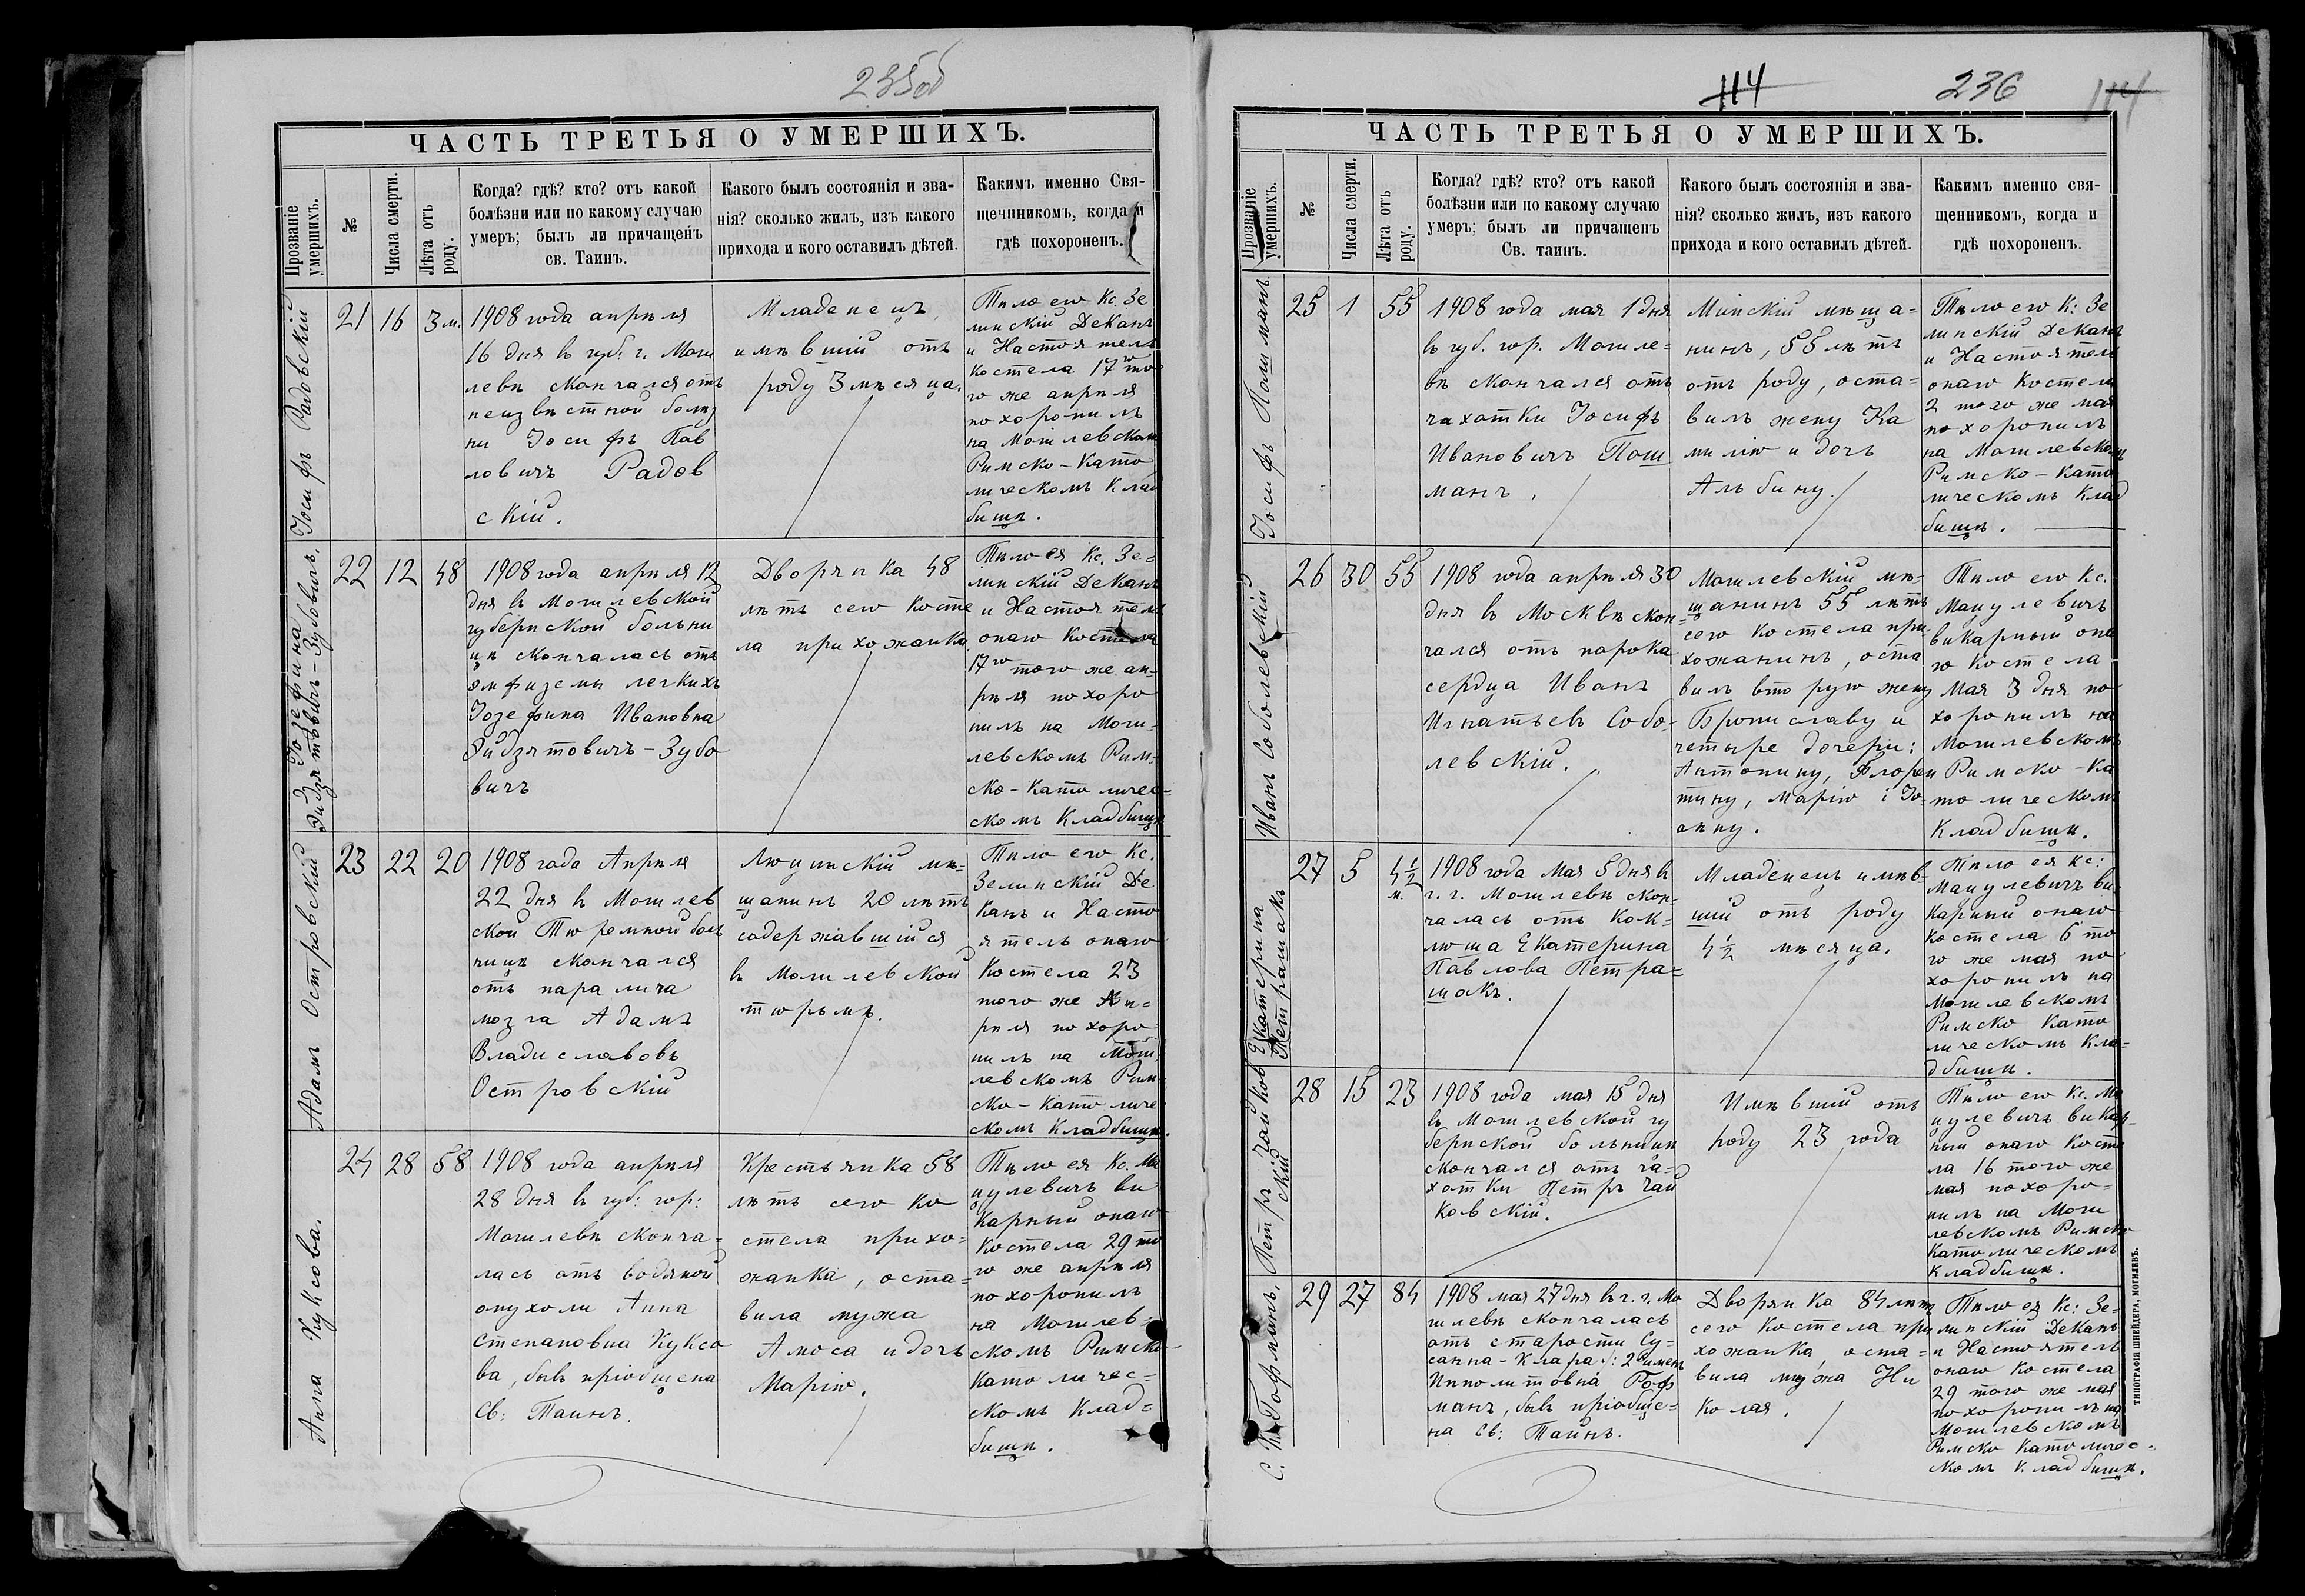 235об
ЧАСТЬ ТРЕТЬЯ О УМЕРШИХЪ.
Прозваніе умершихъ.
№
Числа смерти.
Лѣта отъ роду.
Когда? гдѣ? кто? отъ какой
болѣзни или по какому случаю
умеръ; былъ ли причащенъ
св. Таинъ.
Какого былъ состоянія и зва-
нія? сколько жилъ, изъ какого
прихода и кого оставилъ дѣтей.
Какимъ именно Свя-
щенникомъ, когда и
гдѣ похороненъ.
Іосифъ Радовскій
21
16
3 м.
1908 года апрѣля
16 дня въ губ: г. Моги
левѣ скончался отъ
неизвѣстной болѣз
ни Іосифъ Пав
ловичъ Радов
скій.
Младенецъ,
имѣвшій отъ
роду 3 мѣсяца.
Тѣло его Кс. Зе
линскій Деканъ
и Настоятель
костела 17 то
го же апрѣля
похоронилъ
на Могилевскомъ
Римско-Като
лическомъ Клад
бищѣ.
Іозефина
Эйдзятовичъ-Зубовичъ.
22
12
48
1908 года апрѣля 12
дня въ Могилевской
губернской больни
цѣ скончалась отъ
эмфиземы легкихъ
Іозефина Ивановна
Эйдзятовичъ-Зубо
вичъ
Дворянка 48
лѣтъ сего косте
ла прихожанка.
Тѣло ея Кс. Зе=
линскій Деканъ
и Настоятель
онаго Костела
17го того же ап-
рѣля похоро
нилъ на Моги-
левскомъ Рим-
ско-Католичес=
скомъ Кладбищѣ
Адамъ Островскій
23
22
20
1908 года Апрѣля
22 дня въ Могилев
ской Тюремной боль
ницѣ скончался
отъ паралича
мозга Адамъ
Владиславовъ
Островскій
Люцинскій мѣ-
щанинъ 20 лѣтъ
содержавшійся
въ Могилевской
тюрьмѣ.
Тѣло его Кс.
Зелинскій Де
канъ и Насто
ятель онаго
Костела 23
того же Ап=
рѣля похоро
нилъ на Моги-
левскомъ Рим-
ско-Католиче
скомъ Кладбищѣ.
Анна Куксова.
24
28
58
1908 года апрѣля
28 дня въ губ: гор:
Могилевѣ сконча-
лась отъ водяной
опухоли Анна
Степановна Куксо
ва, бывъ пріобщена
Св: Таинъ.
Крестьянка 58
лѣтъ сего ко
стела прихо-
жанка, оста=
вила мужа
Амоса и дочь
Марію.
Тѣло ея Кс. Ма
цулевичъ ви
карный онаго
Костела 29 то
го же апрѣля
похоронилъ
на Могилев-
скомъ Римско-
Католичес=
скомъ Клад=
бищѣ.
114
236
114
ЧАСТЬ ТРЕТЬЯ О УМЕРШИХЪ.
Прозваніе умершихъ.
№
Числа смерти.
Лѣта отъ роду.
Когда? гдѣ? кто? отъ какой
болѣзни или по какому случаю
умеръ; былъ ли причащенъ
Св. таинъ.
Какого былъ состоянія и зва-
нія? сколько жилъ, изъ какого
прихода и кого оставилъ дѣтей.
Какимъ именно свя-
щенникомъ, когда и
гдѣ похороненъ.
Іосифъ Пошманъ
25
1
55
1908 года мая 1 дня
въ губ. гор. Могиле-
вѣ скончался отъ
чахотки Іосифъ
Ивановичъ Пош
манъ.
Минскій мѣща=
нинъ, 55 лѣтъ
отъ роду, оста=
вилъ жену Ка
милію и дочь
Альбину.
Тѣло его К: Зе
линскій Деканъ
и Настоятель
онаго Костела
2 того же мая
похоронилъ
на Могилевскомъ
Римско-Като
лическомъ Клад
бищѣ.
Иванъ Соболевскій
26
30
55
1908 года апрѣля 30
дня въ Москвѣ скон-
чался отъ порока
сердца Иванъ
Игнатьевъ Собо-
левскій.
Могилевскій мѣ-
щанинъ 55 лѣтъ
сего костела при
хожанинъ, оста
вилъ вторую жену
Брониславу и
четыре дочери:
Антонину, Флорен
тину, Марію і Іо-
анну.
Тѣло его Кс.
Мацулевичъ
викарный она
го Костела
Мая 3 дня по
хоронилъ на
Могилевскомъ
Римско-Ка
толическомъ
Кладбищѣ.
Екатерина
Петрашакъ
27
5
4½ м.
1908 года Мая 5 дня въ
г. г. Могилевѣ скон-
чалась отъ кок-
люша Екатерина
Павлова Петра=
шакъ.
Младенецъ имѣв-
шій отъ роду
4½ мѣсяца.
Тѣло ея кс:
Мацулевичъ ви-
карный онаго
Костела 6 то
го же мая по
хоронилъ на
Могилевскомъ
Римско Като
лическомъ Кла=
дбищѣ.
Петръ Чайков
скій
28
15
23
1908 года мая 15 дня
въ Могилевской гу
бернской больницѣ
скончался отъ ча-
хотки Петръ Чай
ковскій.
Имѣвшій отъ
роду 23 года
Тѣло его Кс. Ма
цулевичъ викар-
ный онаго Косте
ла 16 того же
мая похоро-
нилъ на Моги
левскомъ Римско
Католическомъ
кладбищѣ.
С. К. Гофманъ.
29
27
84
1908 мая 27 дня въ г. г. Мо
гилевѣ скончалась
отъ старости Су-
санна-Клара 2 именъ
Ипполитовна Гоф
манъ, бывъ пріобще-
на Св: Таинъ.
Дворянка 84 лѣтъ
сего Костела при
хожанка, оста=
вила мужа Ни
колая.
Тѣло ея Кс: Зе-
линскій Деканъ
и Настоятель
онаго Костела
29 того же мая
похоронилъ на
Могилевскомъ
Римско Католичес-
скомъ кладбищѣ.
ТИПОГРАФІЯ ШНЕЙДЕРА, МОГИЛЕВЪ.